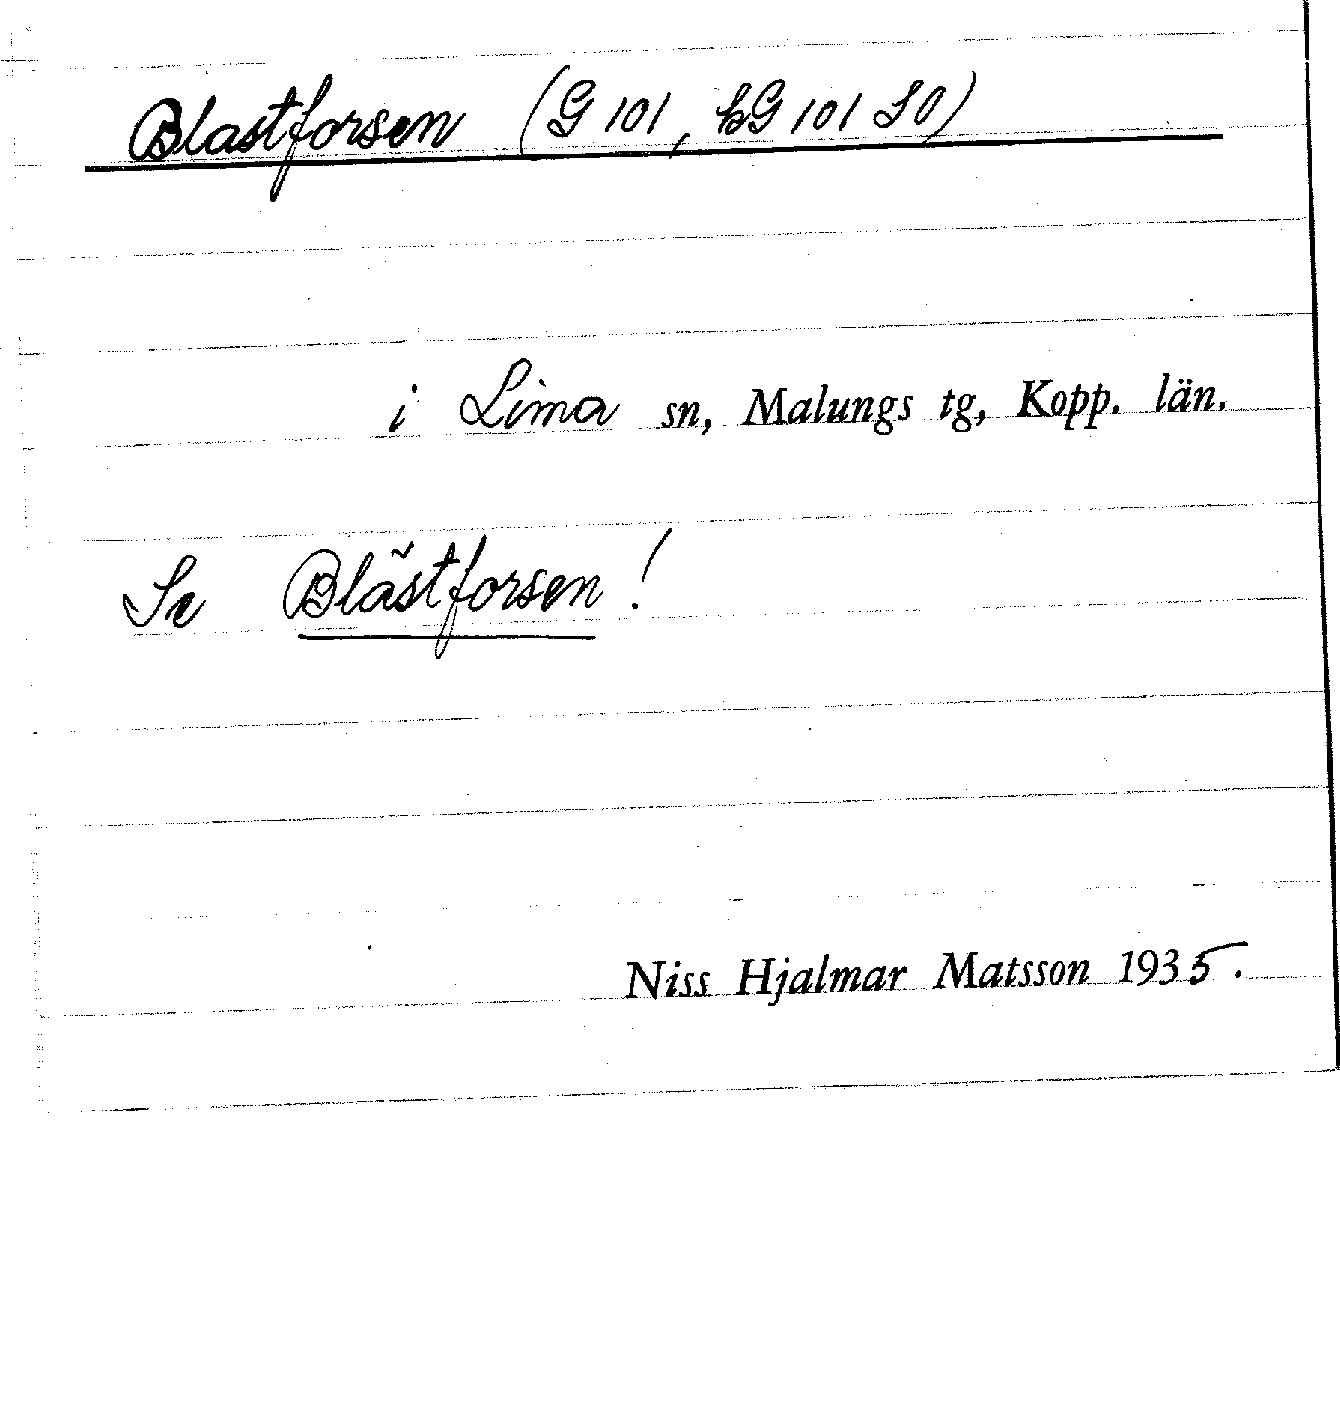 Blastforsen (G 101, kG 101 SO)
i Lima sn, Malungs tg, Kopp. län.
Se Blästforsen!
Niss Hjalmar Matsson 1935.